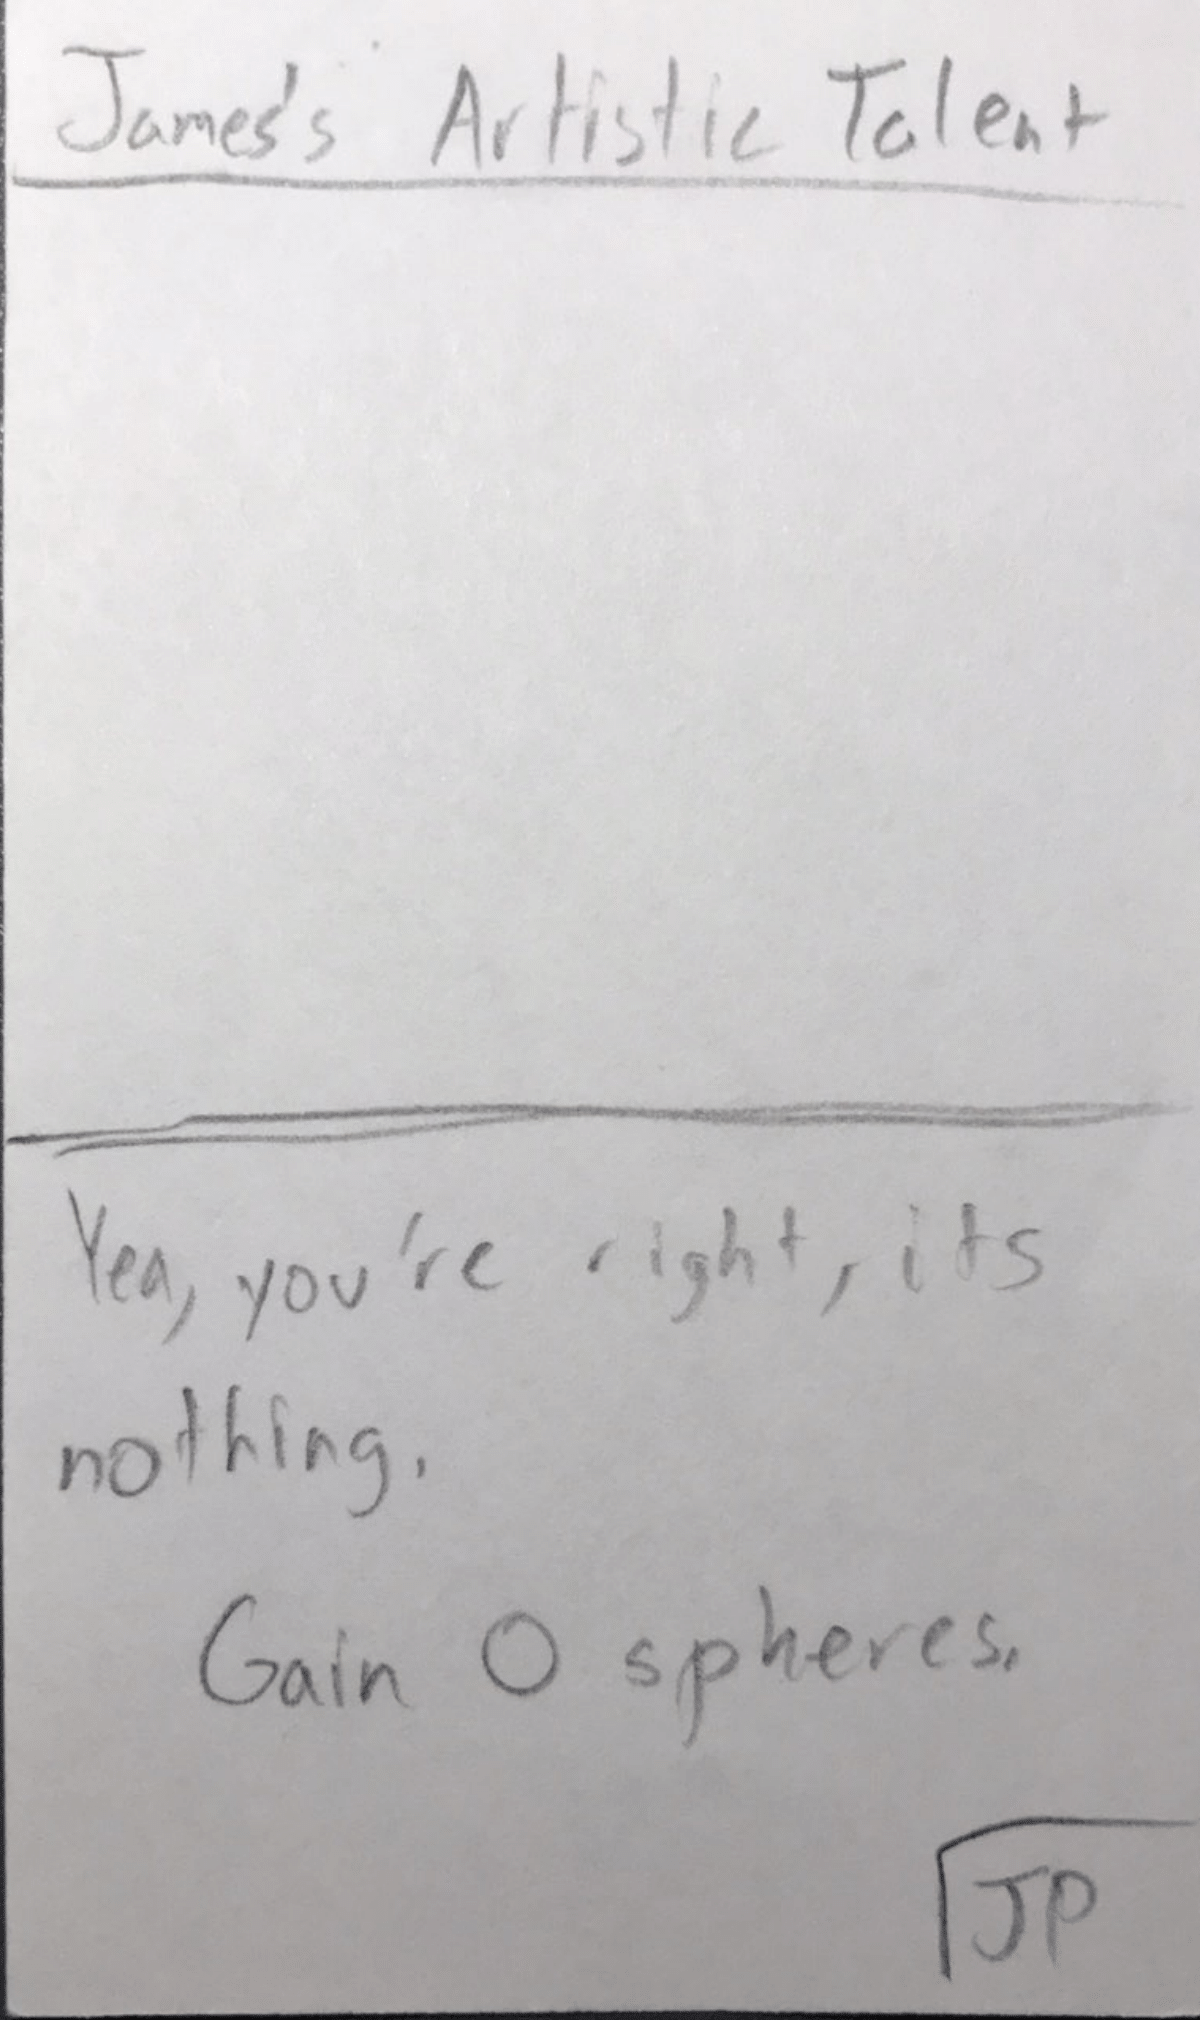 James's Artistic Talent
Yea, you're right, its
nothing.
Gain 0 spheres.
JP